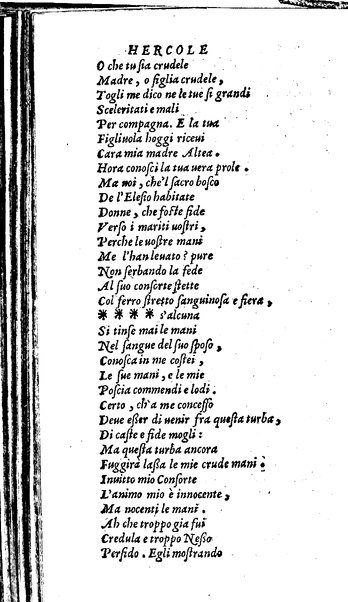 HERCOLE
O che tu sia crudele
Madre, o figlia crudele,
Togli me dico ne le tue sì grandi
Sceleritati e mali
Per compagna. E la tua
Figliuola hoggi riceui
Cara mia madre Altea.
Hora conosci la tua uera prole.
Ma uoi, che'l sacro bosco
De l'Elesio habitate
Donne, che foste fide
Verso i mariti uostri,
Perche le uostre mani
Me l'han leuato? pure
Non serbando la fede
Al suo consorte stette
Col ferro stretto sanguinosa e fiera,
✱ ✱ ✱ ✱ s'alcuna
Si tinse mai le mani
Nel sangue del suo sposo,
Conosca in me costei,
Le sue mani, e le mie
Poscia commendi e lodi.
Certo, ch'a me concesso
Deue eßer di uenir fra questa turba,
Di caste e fide mogli:
Ma questa turba ancora
Fuggirà laßa le mie crude mani.
Inuitto mio Consorte
L'animo mio è innocente,
Ma nocenti le mani.
Ah che troppo gia fui
Credula e troppo Neßo
Perfido. Egli mostrando